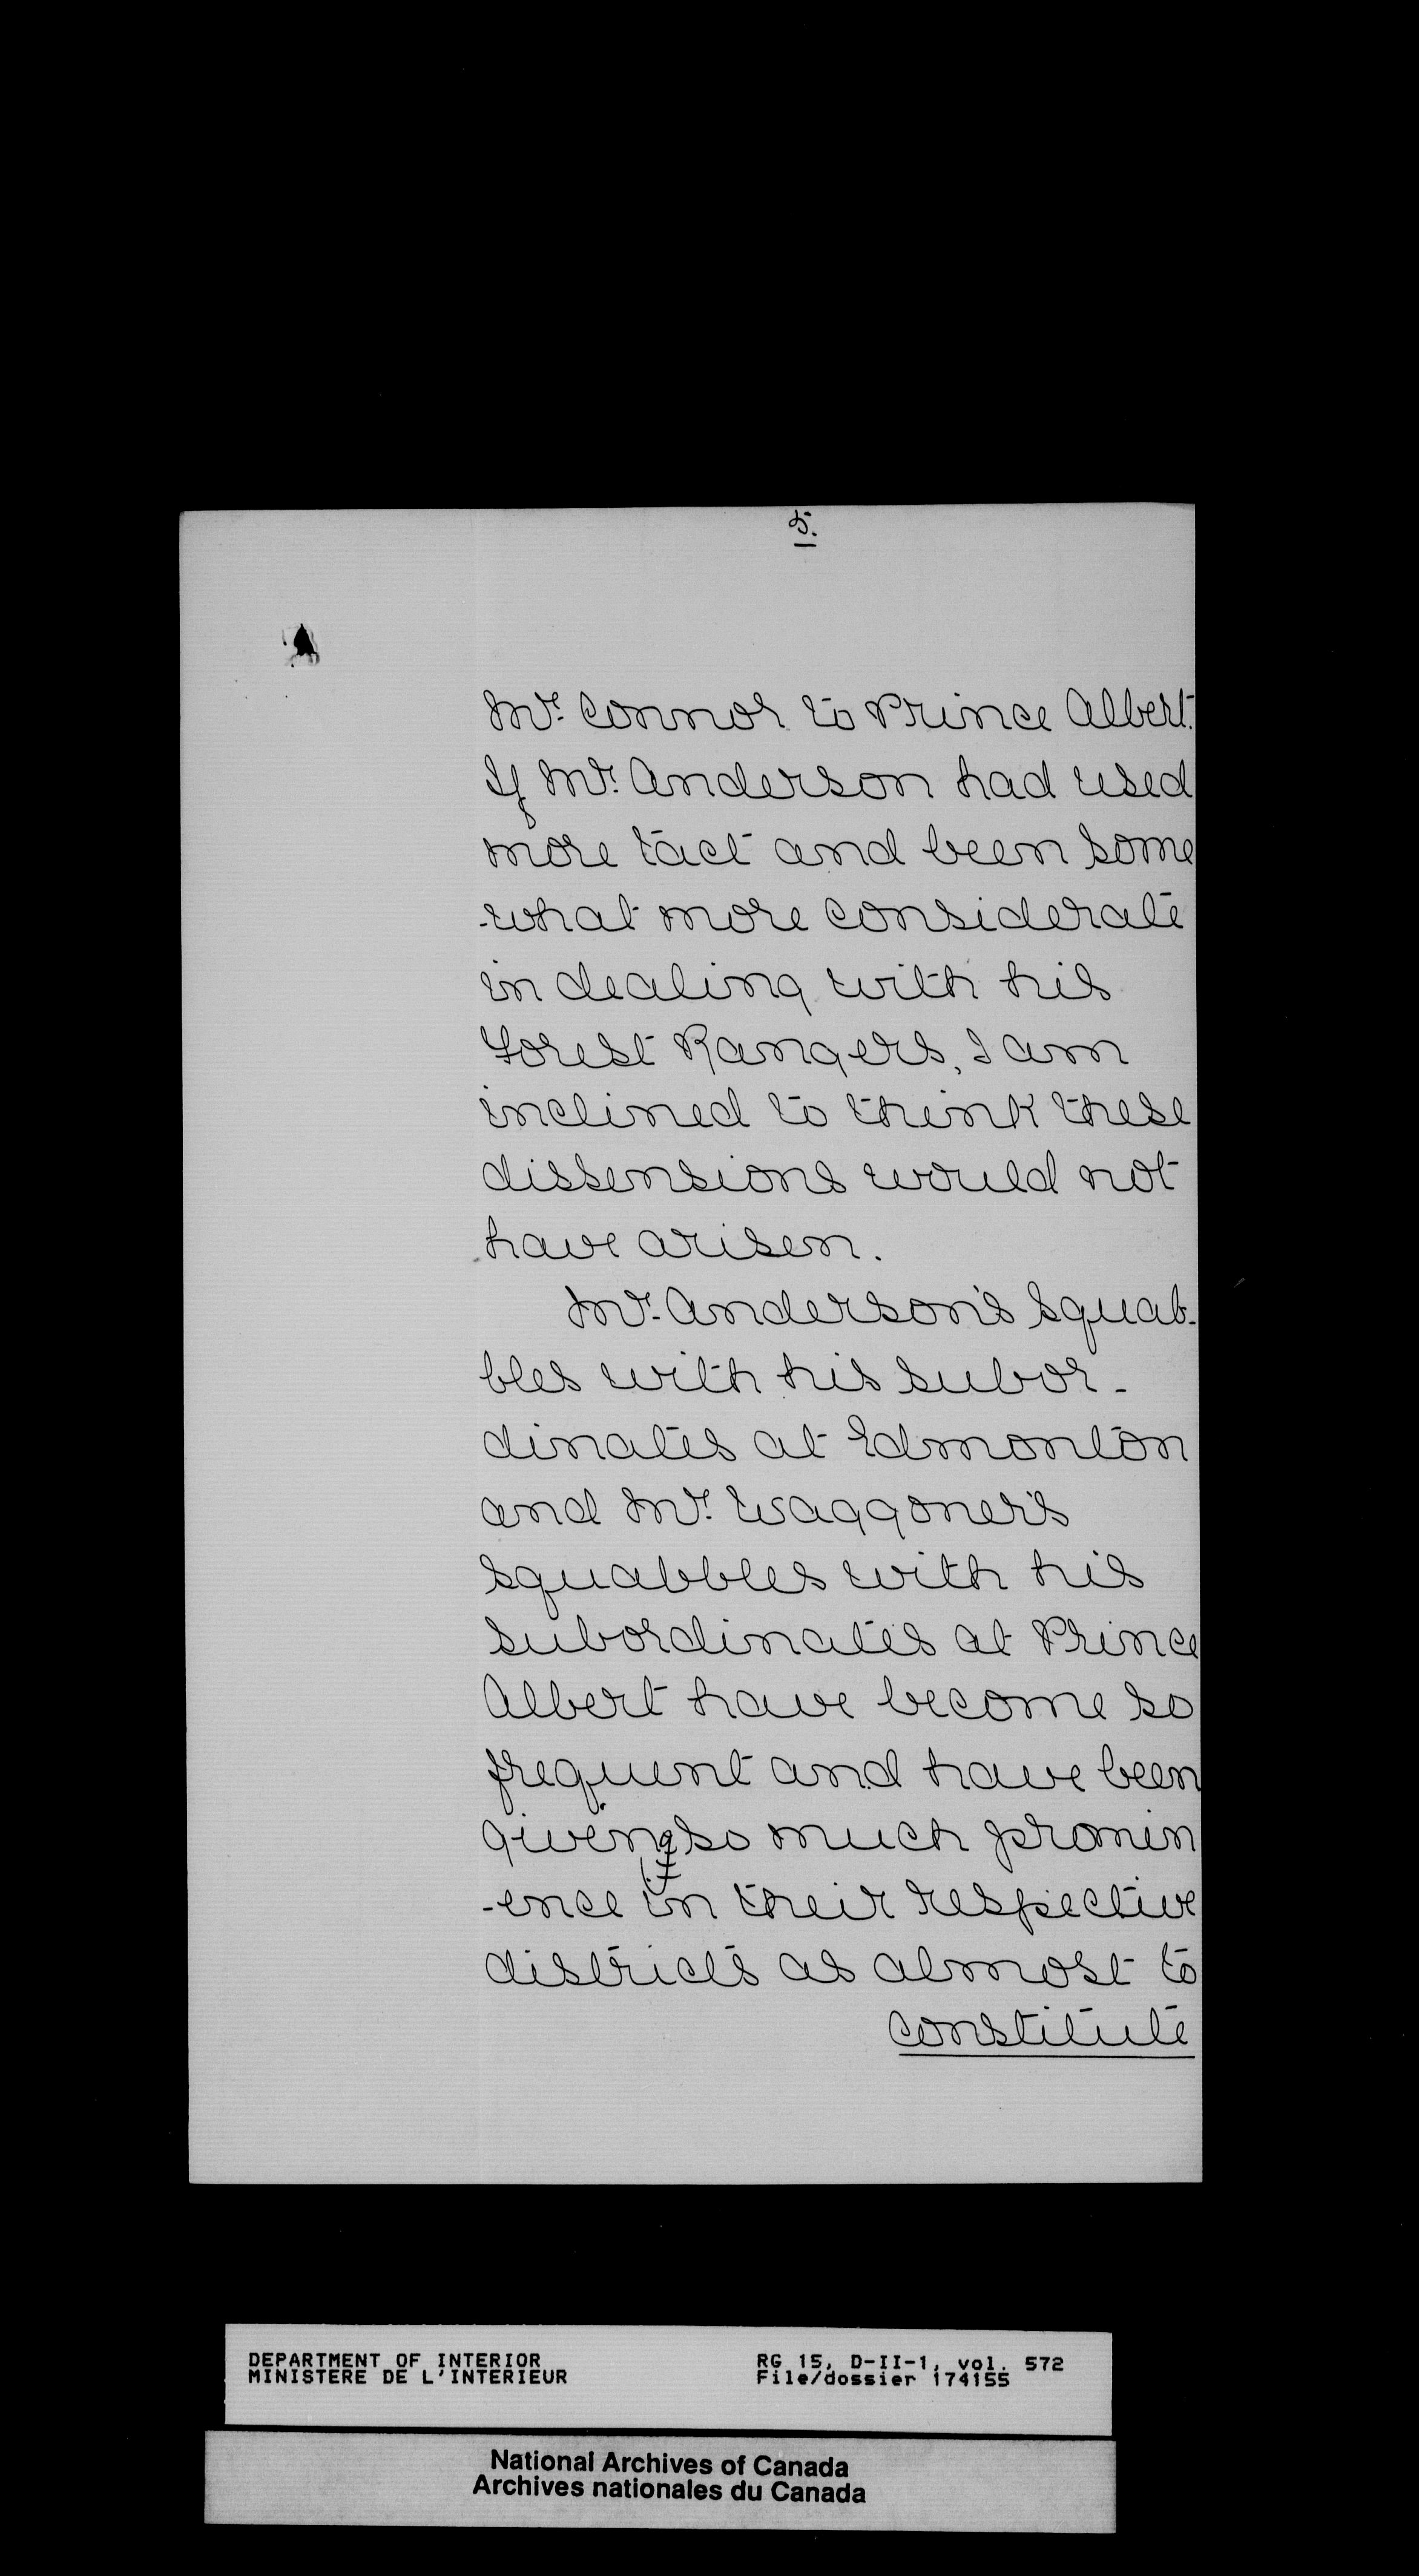 5.
Mr. Connor to Prince Albert.
If Mr. Anderson had used
more tact and been some
-what more considerate
in dealing with his
Forest Rangers, I am
inclined to think these
dissensions would not
have arisen.
Mr. Anderson's squab-
bles with his subor-
dinates at Edmonton
and Mr. Waggoner's
squabbles with his
subordinates at Prince
Albert have become so
frequent and have been
given so much promin
-ence in their respective
districts as almost to
constitute
DEPARTMENT OF INTERIOR
MINISTERE DE L'INTERIEUR
RG 15, D-II-1, vol. 572
File/dossier 174155
National Archives of Canada
Archives nationales du Canada